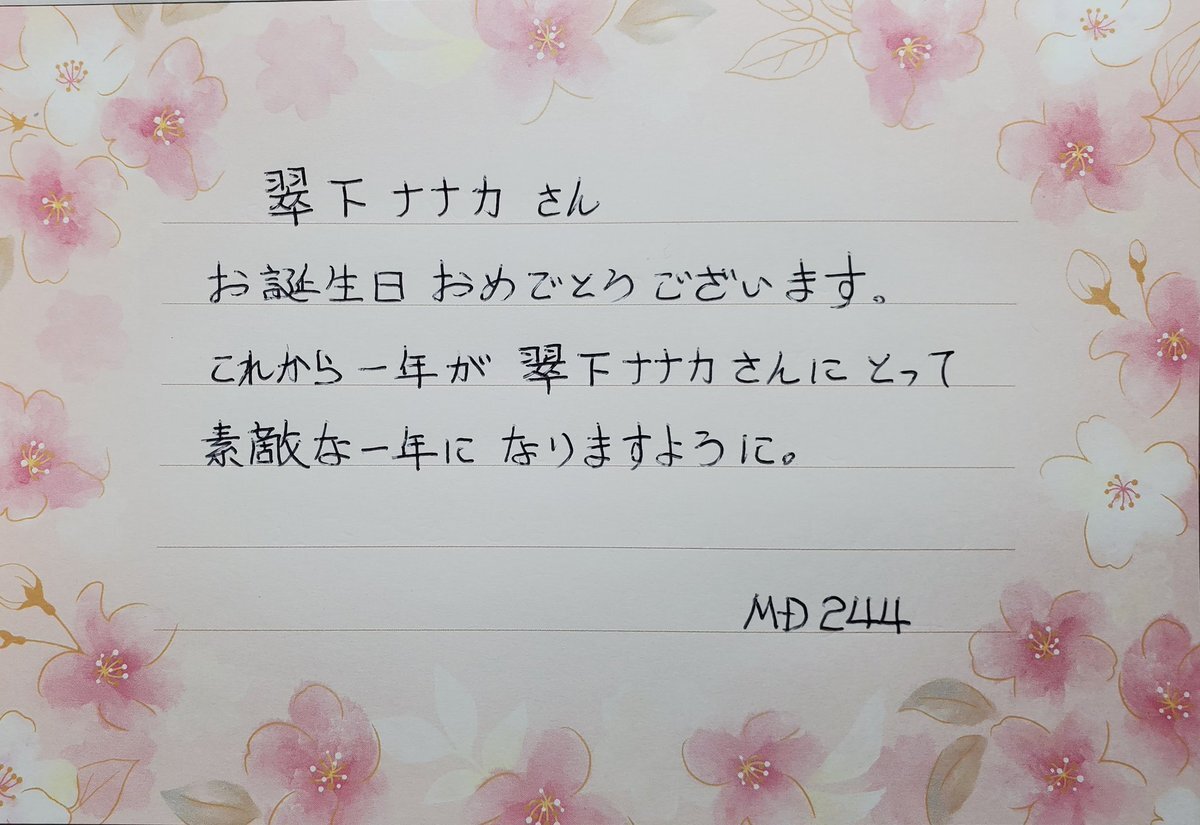 翠下ナナカ さん
お誕生日 おめでとうございます。
これから一年が 翠下ナナカさんにとって
素敵な一年に なりますように。
MD244